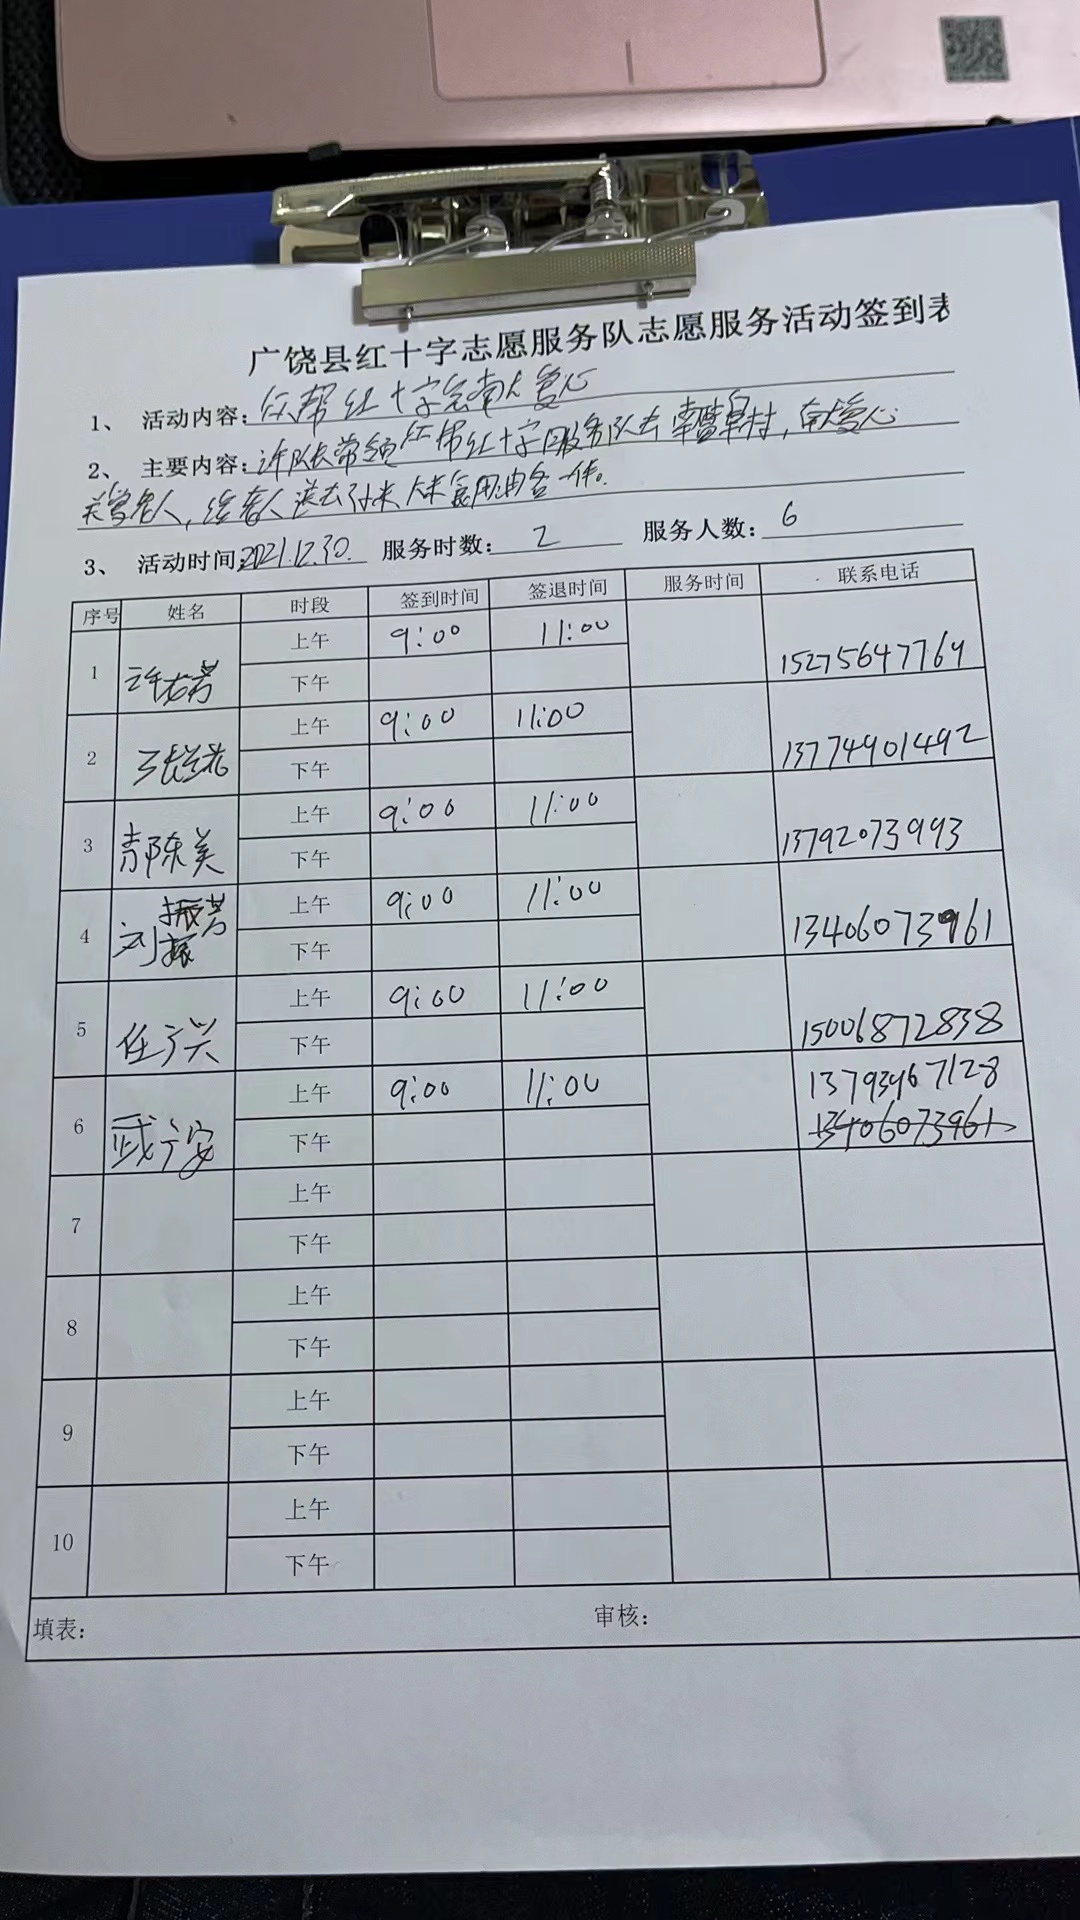 广饶县红十字志愿服务队志愿服务活动签到表
1、 活动内容: 帮红十字会 爱心
2、 主要内容: 许队长带领 帮红十字服务队去 村, 爱心
老人, 给老人送去 大米食用油各一件。
3、 活动时间: 2021.12.30. 服务时数: 2 服务人数: 6
序号 姓名 时段 签到时间 签退时间 服务时间 联系电话
1 许 芳 上午 9:00 11:00 15275647764
下午
2 上午 9:00 11:00 13774901492
下午
3 陈美 上午 9:00 11:00 13792073993
下午
4 刘振芳 上午 9:00 11:00 13406073961
下午
5 任广兴 上午 9:00 11:00 15006872838
下午
6 广安 上午 9:00 11:00 13793967128
下午 13406073961
7 上午
下午
8 上午
下午
9 上午
下午
10 上午
下午
填表: 审核: